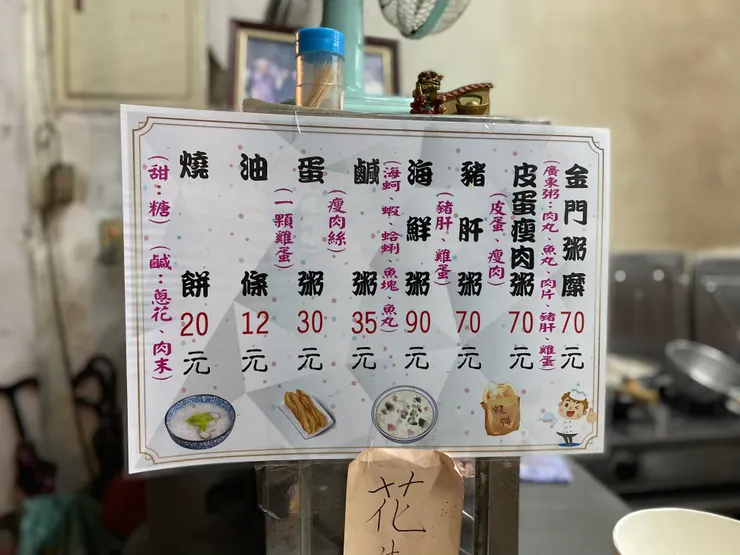 金門粥糜 70元
(廣東粥:肉丸、魚丸、肉片、豬肝、雞蛋)
皮蛋瘦肉粥 70元
(皮蛋、瘦肉)
豬肝粥 70元
(豬肝、雞蛋)
海鮮粥 90元
(海蚵、蝦、蛤蜊、魚塊、魚丸)
鹹粥 35元
(瘦肉絲)
蛋粥 30元
(一顆雞蛋)
油條 12元
燒餅 20元
(甜:糖) (鹹:蔥花、肉末)
花